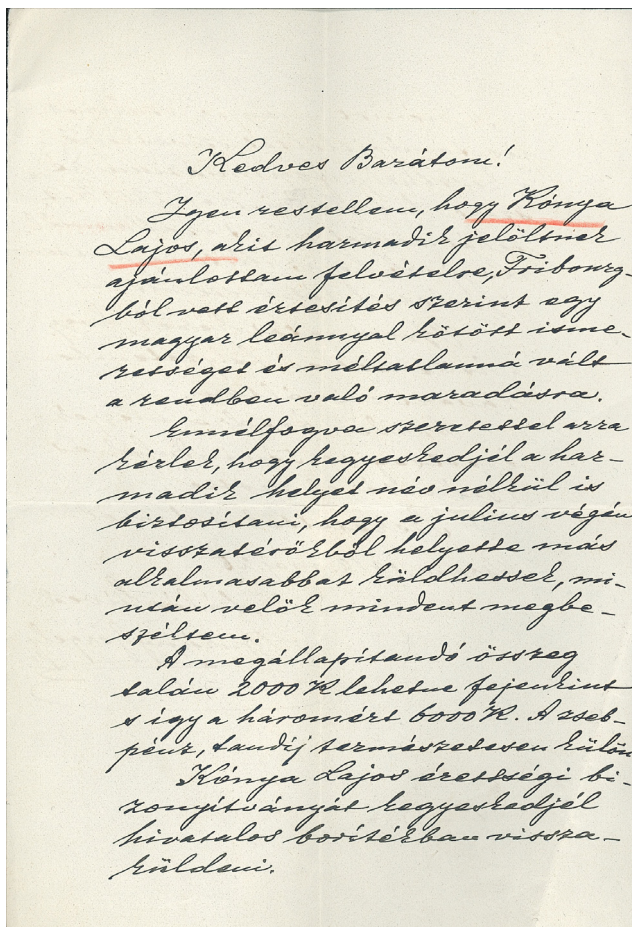 Kedves Barátom!
Igen restellem, hogy Kónya
Lajos, akit harmadik jelöltnek
ajánlottam felvételre, Fribourg-
ból vett értesítés szerint egy
magyar leánnyal kötött isme-
retséget és méltatlanná vált
a rendben való maradásra.
Ennélfogva szeretettel arra
kérlek, hogy kegyeskedjél a har-
madik helyet név nélkül is
biztosítani, hogy a julius végén
visszatérőkből helyette más
alkalmasabbat küldhessek, mi-
után velök mindent megbe-
széltem.
A megállapítandó összeg
talán 2000 K lehetne fejenkint
s így a háromért 6000 K. A zseb-
pénz, tandíj természetesen külön
Kónya Lajos érettségi bi-
zonyítványát kegyeskedjél
hivatalos borítékban vissza-
küldeni.